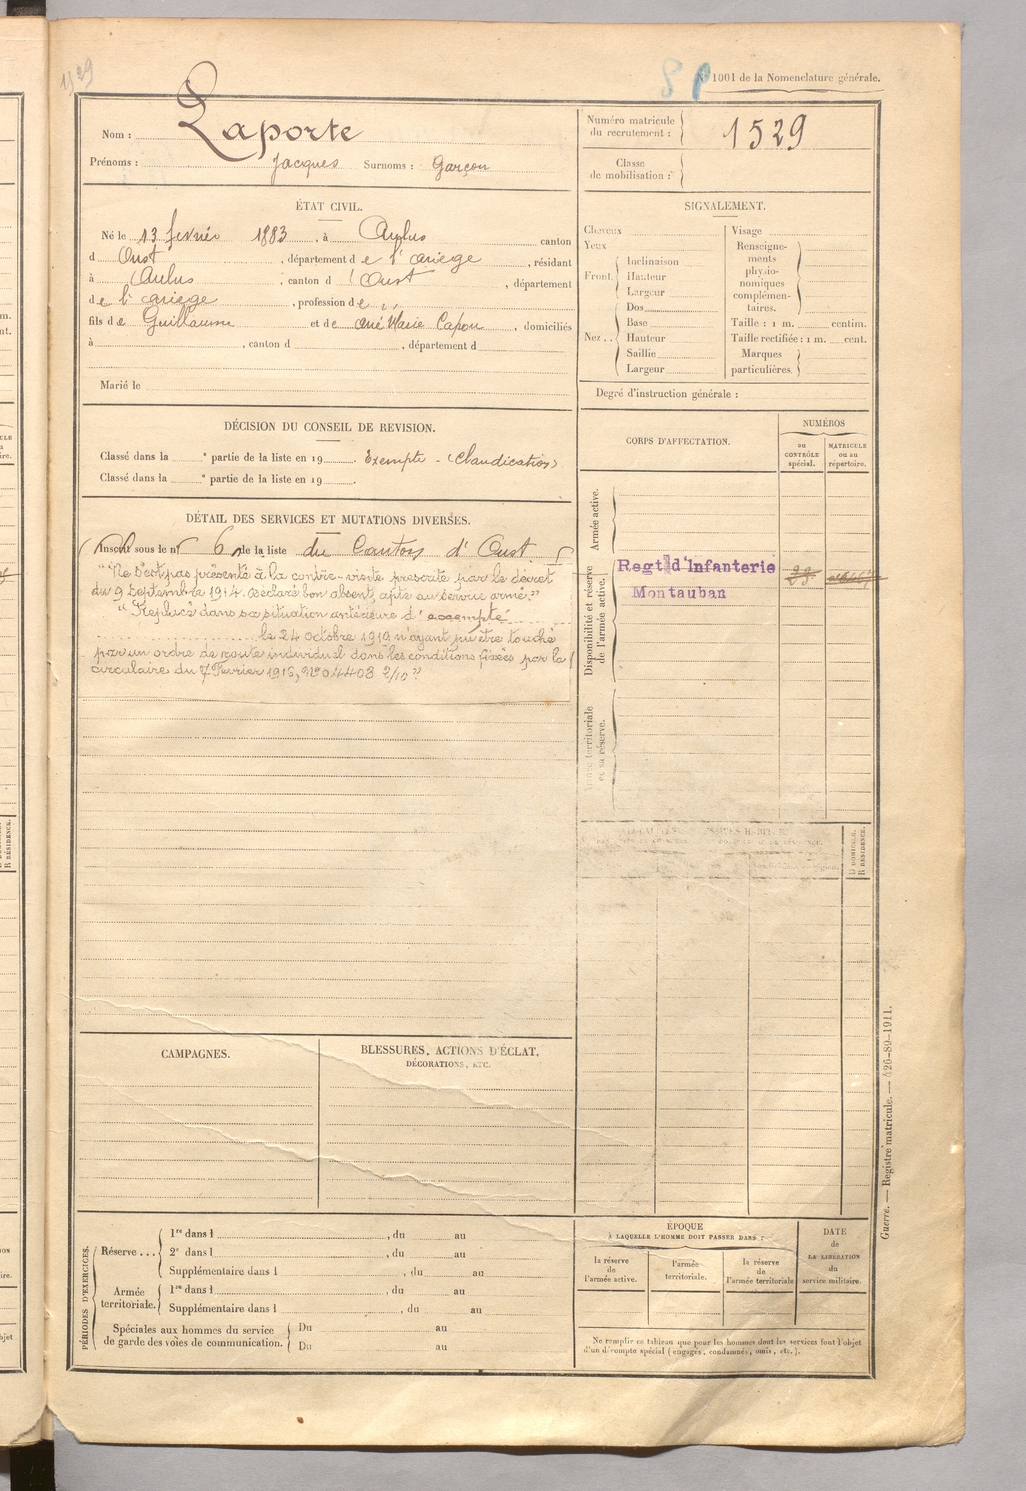 1529
81
N° 1001 de la Nomenclature générale.
Nom : Laporte
Prénoms : Jacques Surnoms : Garçon
Numéro matricule du recrutement : 1529
Classe de mobilisation :
ÉTAT CIVIL.
Né le 13 février 1883, à Aulus canton
d Oust, département de l'ariège, résidant
à Aulus, canton d'Oust, département
de l'ariège, profession de „
fils de Guillaume et de Marie Capou, domiciliés
à , canton d , département d
Marié le
SIGNALEMENT.
Cheveux
Yeux
Front
Inclinaison
Hauteur
Largeur
Nez
Dos
Base
Hauteur
Saillie
Largeur
Visage
Renseignements physionomiques complémentaires.
Taille : 1 m. centim.
Taille rectifiée : 1 m. cent.
Marques particulières.
Degré d'instruction générale :
DÉCISION DU CONSEIL DE REVISION.
Classé dans la e partie de la liste en 19 . Exempté - (Claudication)
Classé dans la e partie de la liste en 19 .
DÉTAIL DES SERVICES ET MUTATIONS DIVERSES.
Inscrit sous le n° 6 de la liste du Canton d'Oust
"Ne s'est pas présenté à la contre-visite prescrite par le décret
du 9 Septembre 1914. Déclaré bon absent, apte au service armé."
"Replacé dans sa situation antérieure d'exempté
le 24 octobre 1919 n'ayant pu être touché
par un ordre de route individuel dans les conditions fixées par la
circulaire du 7 Février 1916, N° 04403 2/10"
CORPS D'AFFECTATION.
NUMÉROS
au CONTRÔLE spécial.
MATRICULE ou au répertoire.
Armée active.
Disponibilité et réserve de l'armée active.
Regt d'Infanterie
Montauban
Armée territoriale et sa réserve.
D DOMICILE.
R RÉSIDENCE.
CAMPAGNES.
BLESSURES, ACTIONS D'ÉCLAT,
DÉCORATIONS, ETC.
PÉRIODES D'EXERCICES.
Réserve . . .
1re dans l , du au
2e dans l , du au
Supplémentaire dans l , du au
Armée territoriale.
1re dans l , du au
Supplémentaire dans l , du au
Spéciales aux hommes du service de garde des voies de communication.
Du au
Du au
ÉPOQUE
À LAQUELLE L'HOMME DOIT PASSER DANS :
la réserve de l'armée active.
l'armée territoriale.
la réserve de l'armée territoriale
DATE de LA LIBÉRATION du service militaire.
Ne remplir ce tableau que pour les hommes dont les services font l'objet
d'un décompte spécial (engagés, condamnés, omis, etc.).
Guerre. — Registre matricule. — 426-89-1911.